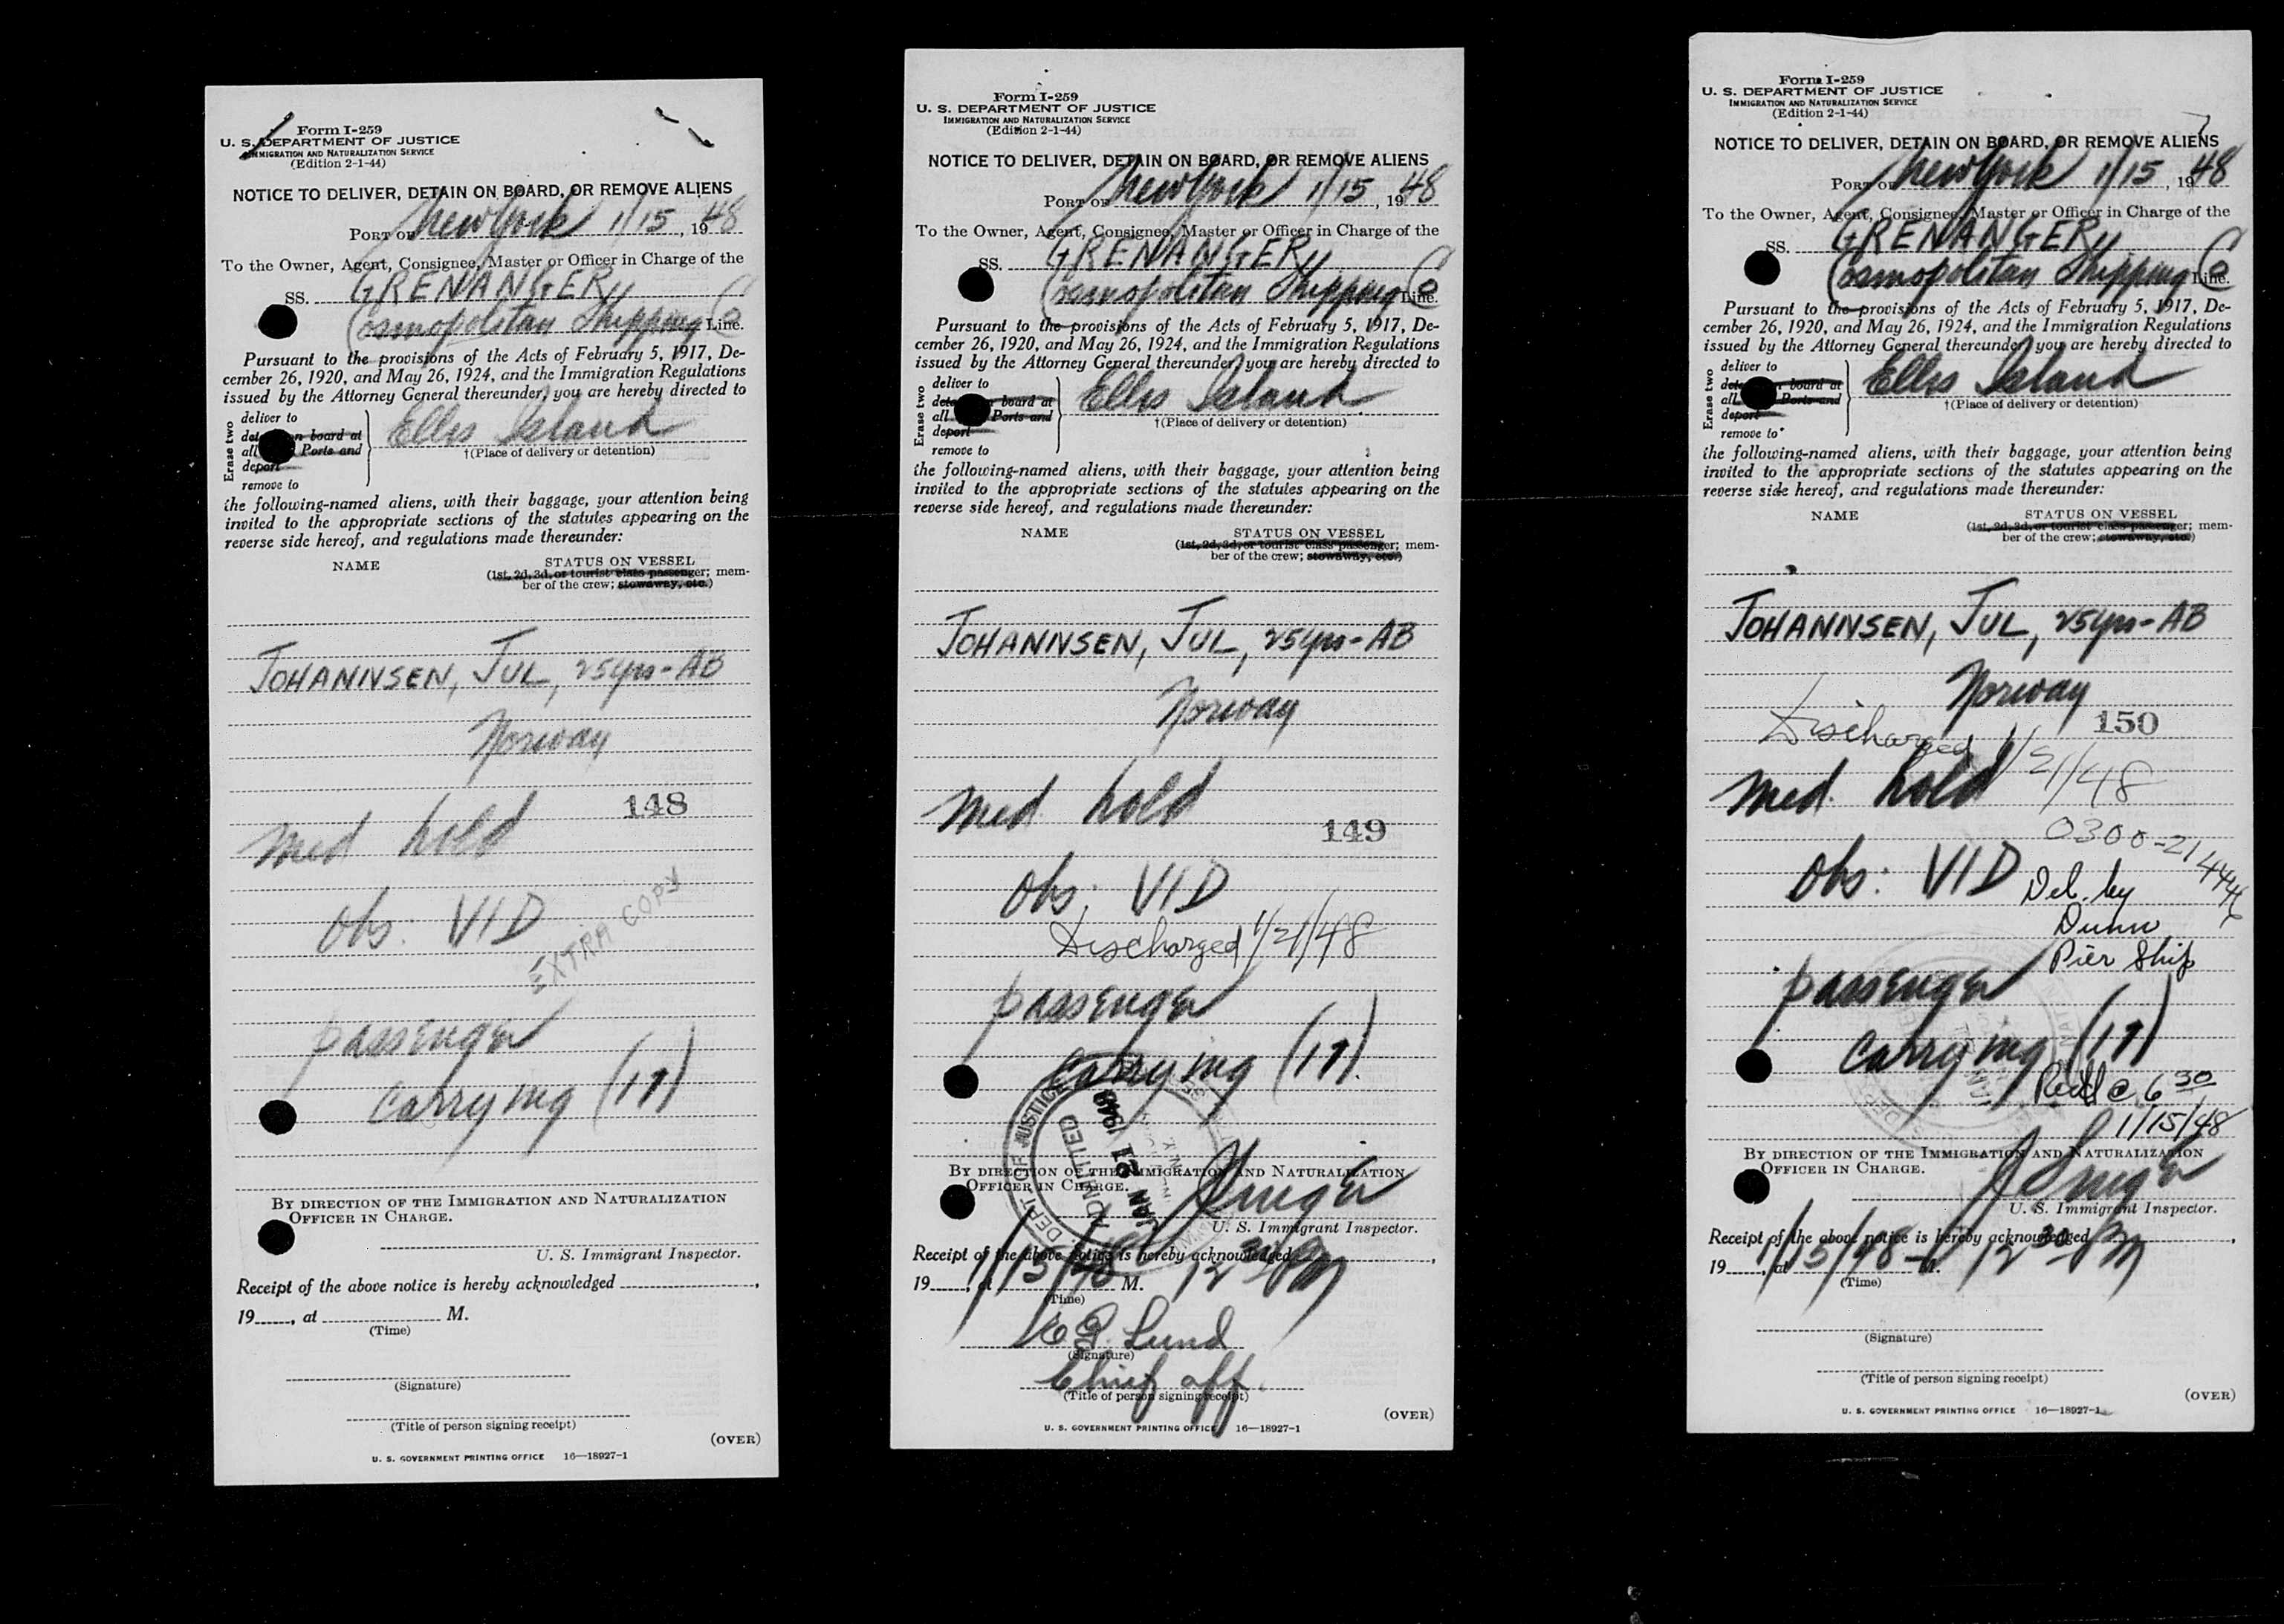 Form I-259
U. S. DEPARTMENT OF JUSTICE
IMMIGRATION AND NATURALIZATION SERVICE
(Edition 2-1-44)
NOTICE TO DELIVER, DETAIN ON BOARD, OR REMOVE ALIENS
PORT OF New York 1/15, 1948
To the Owner, Agent, Consignee, Master or Officer in Charge of the
SS. GRENANGER
Cosmopolitan Shipping Co Line.
Pursuant to the provisions of the Acts of February 5, 1917, De-
cember 26, 1920, and May 26, 1924, and the Immigration Regulations
issued by the Attorney General thereunder, you are hereby directed to
Erase two
deliver to
det n board at
all Ports and
deport
remove to
Ellis Island
†(Place of delivery or detention)
the following-named aliens, with their baggage, your attention being
invited to the appropriate sections of the statutes appearing on the
reverse side hereof, and regulations made thereunder:
NAME STATUS ON VESSEL
(1st, 2d, 3d, or tourist class passenger; mem-
ber of the crew; stowaway, etc.)
JOHANNSEN, JUL, 25yrs-AB
Norway
148
Med hold
Obs: VID
EXTRA COPY
passenger
carrying (17)
BY DIRECTION OF THE IMMIGRATION AND NATURALIZATION
OFFICER IN CHARGE.
U. S. Immigrant Inspector.
Receipt of the above notice is hereby acknowledged ,
19 , at M.
(Time)
(Signature)
(Title of person signing receipt)
(OVER)
U. S. GOVERNMENT PRINTING OFFICE 16—18927-1
Form I-259
U. S. DEPARTMENT OF JUSTICE
IMMIGRATION AND NATURALIZATION SERVICE
(Edition 2-1-44)
NOTICE TO DELIVER, DETAIN ON BOARD, OR REMOVE ALIENS
PORT OF New York 1/15, 1948
To the Owner, Agent, Consignee, Master or Officer in Charge of the
SS. GRENANGER
Cosmopolitan Shipping Co Line.
Pursuant to the provisions of the Acts of February 5, 1917, De-
cember 26, 1920, and May 26, 1924, and the Immigration Regulations
issued by the Attorney General thereunder, you are hereby directed to
Erase two
deliver to
deta board at
all Ports and
deport
remove to
Ellis Island
†(Place of delivery or detention)
the following-named aliens, with their baggage, your attention being
invited to the appropriate sections of the statutes appearing on the
reverse side hereof, and regulations made thereunder:
NAME STATUS ON VESSEL
(1st, 2d, 3d, or tourist class passenger; mem-
ber of the crew; stowaway, etc.)
JOHANNSEN, JUL, 25yrs-AB
Norway
Med. hold
149
Obs: VID
Discharged 1/21/48
passenger
carrying (17)
DEPT OF JUSTICE
ADMITTED
JAN 21 1948
BY DIRECTION OF THE IMMIGRATION AND NATURALIZATION
OFFICER IN CHARGE.
U. S. Immigrant Inspector.
Receipt of the above notice is hereby acknowledged ,
19 , at M.
1/15/48 12 30 PM
(Time)
Lund
(Signature)
Chief off.
(Title of person signing receipt)
(OVER)
U. S. GOVERNMENT PRINTING OFFICE 16—18927-1
Form I-259
U. S. DEPARTMENT OF JUSTICE
IMMIGRATION AND NATURALIZATION SERVICE
(Edition 2-1-44)
NOTICE TO DELIVER, DETAIN ON BOARD, OR REMOVE ALIENS
PORT OF New York 1/15, 1948
To the Owner, Agent, Consignee, Master or Officer in Charge of the
SS. GRENANGER
Cosmopolitan Shipping Co Line.
Pursuant to the provisions of the Acts of February 5, 1917, De-
cember 26, 1920, and May 26, 1924, and the Immigration Regulations
issued by the Attorney General thereunder, you are hereby directed to
Erase two
deliver to
deta board at
all Ports and
deport
remove to
Ellis Island
†(Place of delivery or detention)
the following-named aliens, with their baggage, your attention being
invited to the appropriate sections of the statutes appearing on the
reverse side hereof, and regulations made thereunder:
NAME STATUS ON VESSEL
(1st, 2d, 3d, or tourist class passenger; mem-
ber of the crew; stowaway, etc.)
JOHANNSEN, JUL, 25yrs-AB
Norway
150
Discharged 1/21/48
Med. hold
0300-21444
Obs: VID
Del. by
Dunn
Pier Ship
passenger
carrying (17)
Rec'd @ 6 30
1/15/48
BY DIRECTION OF THE IMMIGRATION AND NATURALIZATION
OFFICER IN CHARGE.
U. S. Immigrant Inspector.
Receipt of the above notice is hereby acknowledged ,
19 , at M.
1/15/48 12 30 PM
(Time)
(Signature)
(Title of person signing receipt)
(OVER)
U. S. GOVERNMENT PRINTING OFFICE 16—18927-1